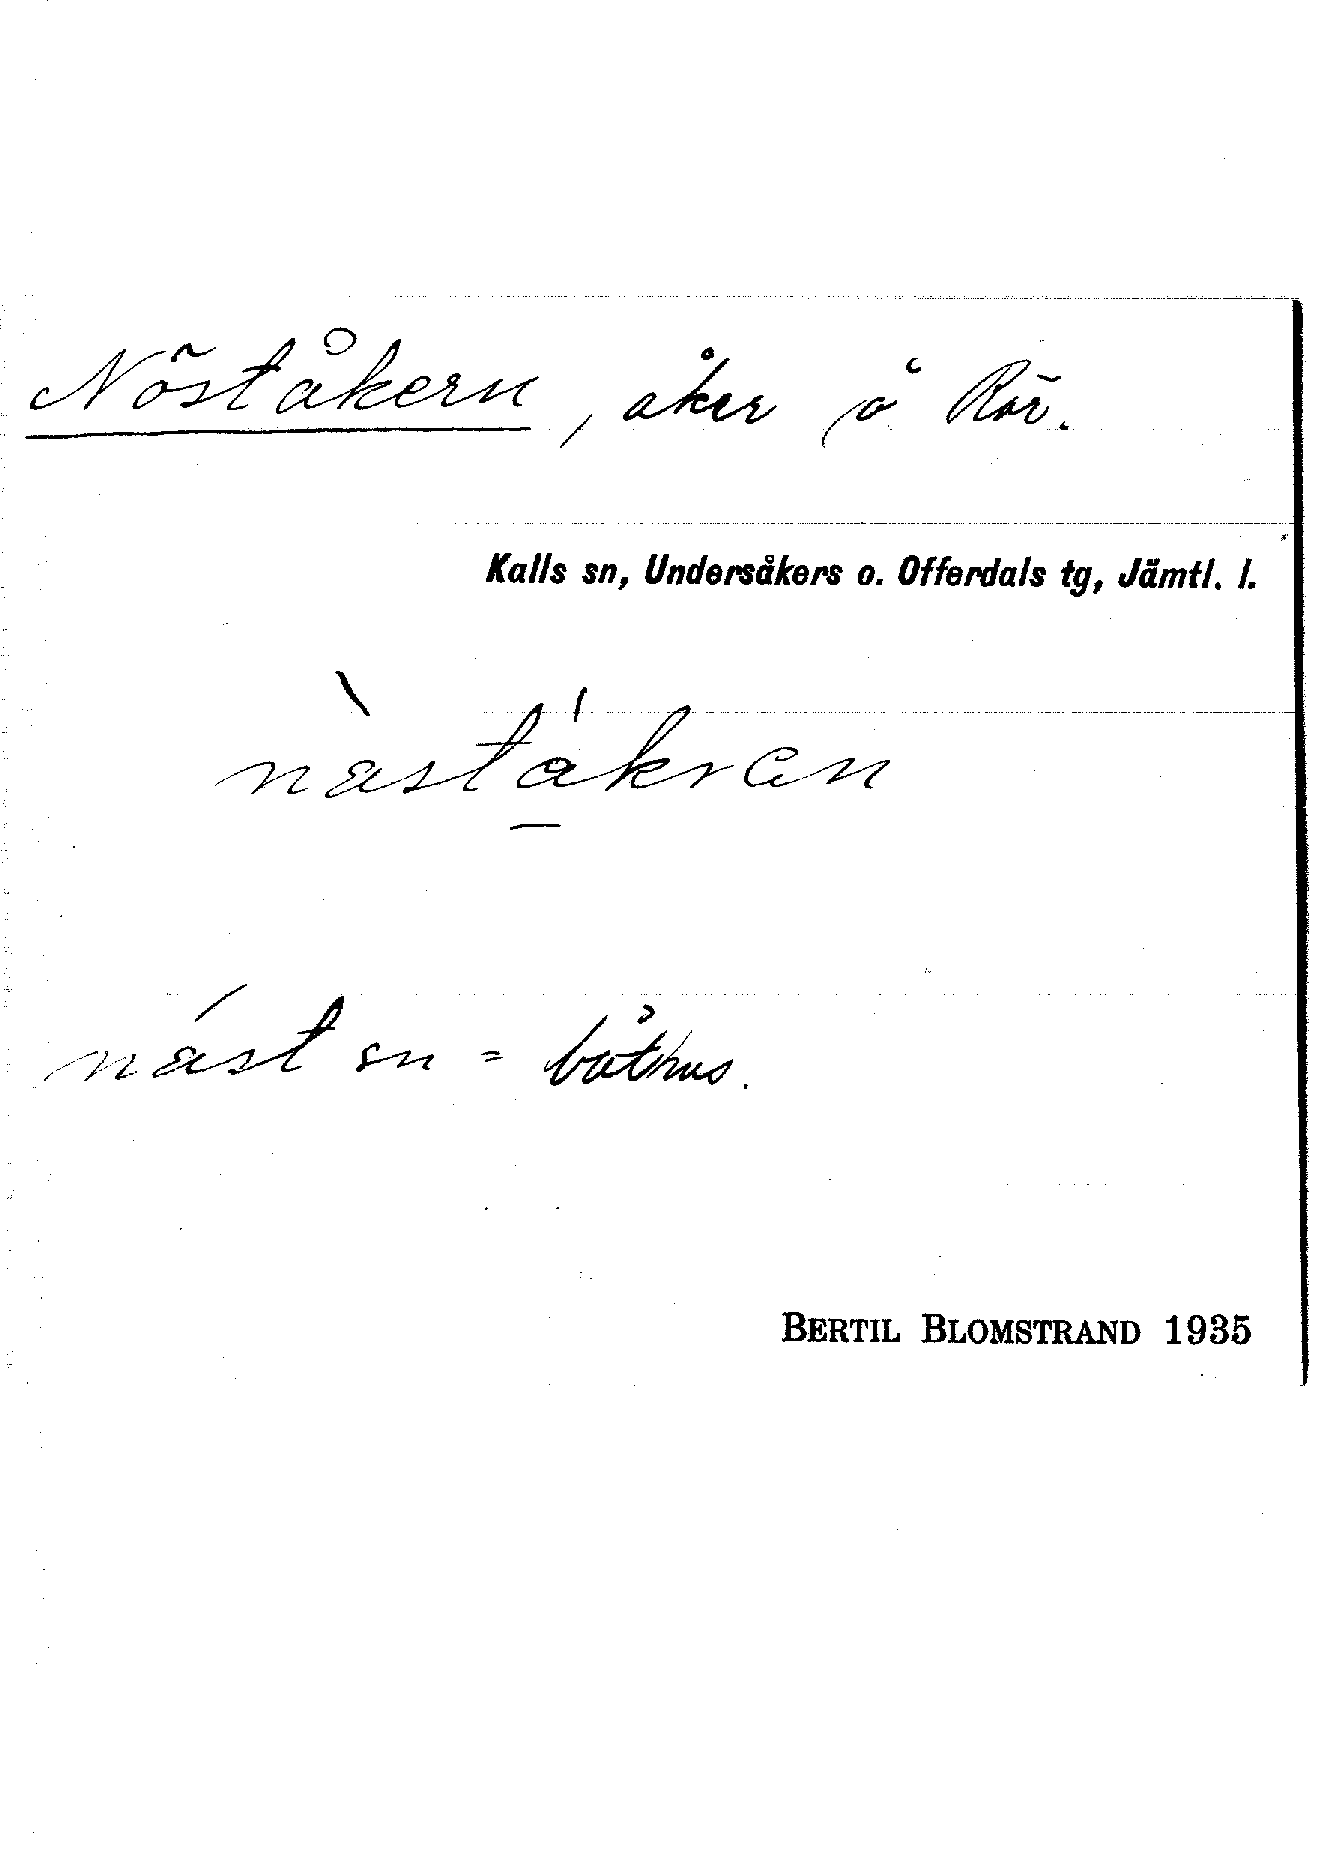 Nöståkern, åker å Rör.
Kalls sn, Undersåkers o. Offerdals tg, Jämtl. l.
nàstákran
nást sn = båthus.
BERTIL BLOMSTRAND 1935